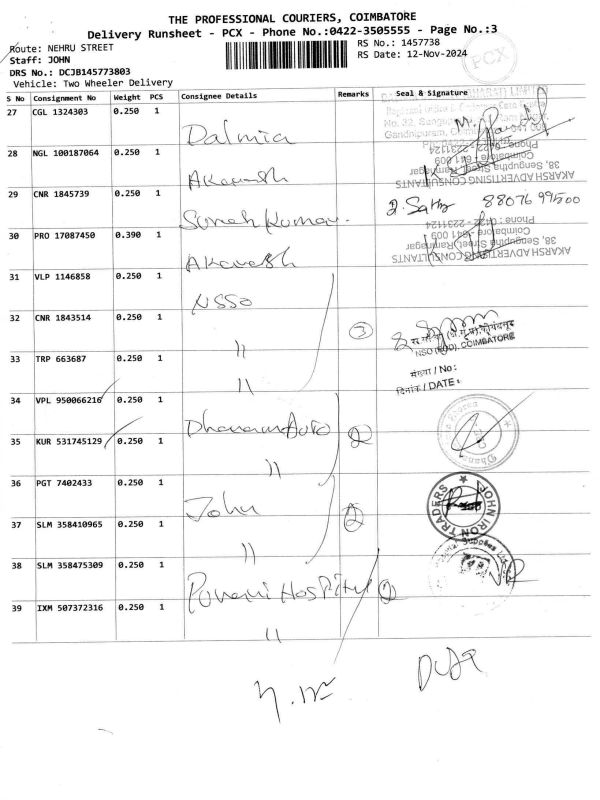 THE PROFESSIONAL COURIERS, COIMBATORE
Delivery Runsheet - PCX - Phone No.:0422-3505555 - Page No.:3
Route: NEHRU STREET
RS No.: 1457738
Staff: JOHN
RS Date: 12-Nov-2024
PCX
DRS No.: DCJB145773803
Vehicle: Two Wheeler Delivery
S No Consignment No Weight PCS Consignee Details Remarks Seal & Signature
27 CGL 1324303 0.250 1 Dalmia
28 NGL 100187064 0.250 1 Akarsh
AKARSH ADVERTISING CONSULTANTS
38, Sengupta Street, Ramnagar
Coimbatore - 641 009
Phone : 0422 - 2231124
29 CNR 1845739 0.250 1 Suresh Kumar.
88076 99500
30 PRO 17087450 0.390 1 Akarsh
AKARSH ADVERTISING CONSULTANTS
38, Sengupta Street, Ramnagar
Coimbatore - 641 009
Phone : 0422 - 2231124
31 VLP 1146858 0.250 1 NSSO
32 CNR 1843514 0.250 1 " 3
NSO (FOD), COIMBATORE
33 TRP 663687 0.250 1 "
संख्या / No:
दिनांक / DATE:
34 VPL 950066216 0.250 1 Dhanam Auto 2
35 KUR 531745129 0.250 1 "
36 PGT 7402433 0.250 1 John 2
JOHN IRON TRADERS
37 SLM 358410965 0.250 1 "
38 SLM 358475309 0.250 1 Hospital 2
39 IXM 507372316 0.250 1 "